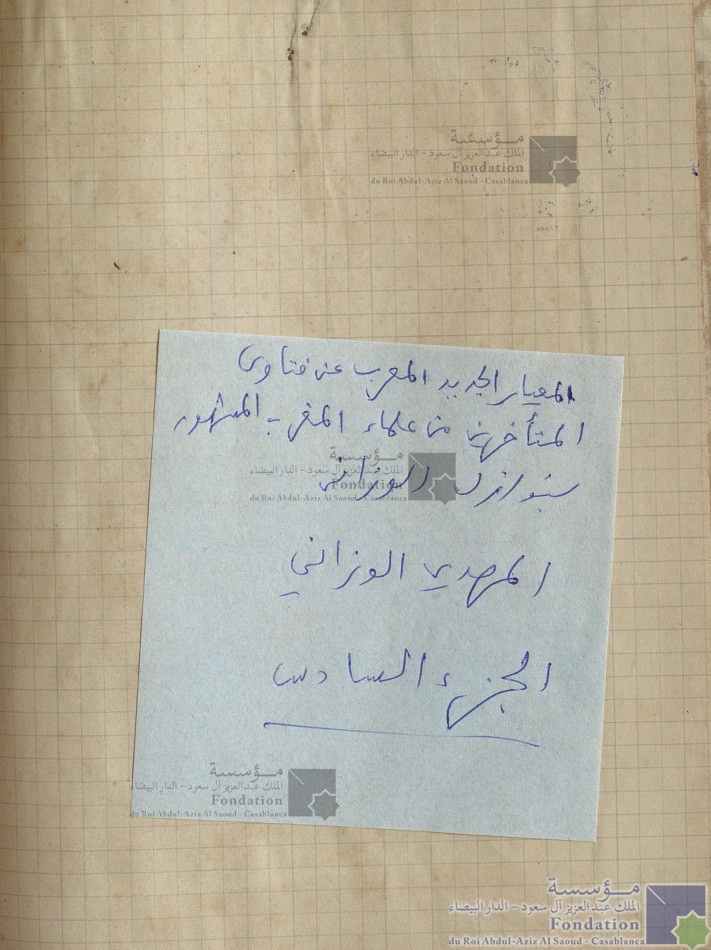 مؤسسة
الملك عبد العزيز آل سعود - الدار البيضاء
Fondation
du Roi Abdul-Aziz Al Saoud - Casablanca
المعيار الجديد المعرب عن فتاوى
المتأخرين من علماء المغرب المشهور
بنوازل الوزاني
مؤسسة
الملك عبد العزيز آل سعود - الدار البيضاء
Fondation
du Roi Abdul-Aziz Al Saoud - Casablanca
المهدي الوزاني
الجزء السادس
مؤسسة
الملك عبد العزيز آل سعود - الدار البيضاء
Fondation
du Roi Abdul-Aziz Al Saoud - Casablanca
مؤسسة
الملك عبد العزيز آل سعود - الدار البيضاء
Fondation
du Roi Abdul-Aziz Al Saoud - Casablanca